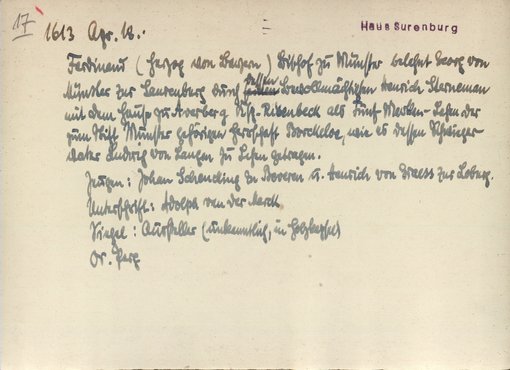 17
1613 Apr. 18.
Haus Surenburg
Ferdinand (Herzog von Bayern) Bischof zu Münster belehnt Georg von
Münster zur Surenberg durch dessen Bevollmächtigten Henrich Sterneman
mit dem Hause zu Averberg Ksp. Risenbeck als fünf Marken-Lehen der
zum Stift Münster gehörigen Herrschaft Borckeloe, wie es dessen Schwieger-
vater Ludwig von Langen zu Lehen getragen.
Zeugen: Johan Schencking zu Beveren u. Henrich von zur Loburg.
Unterschrift: Adolph van der Marck
Siegel: Aussteller (unkenntlich, in Holzkapsel)
Or. Perg.